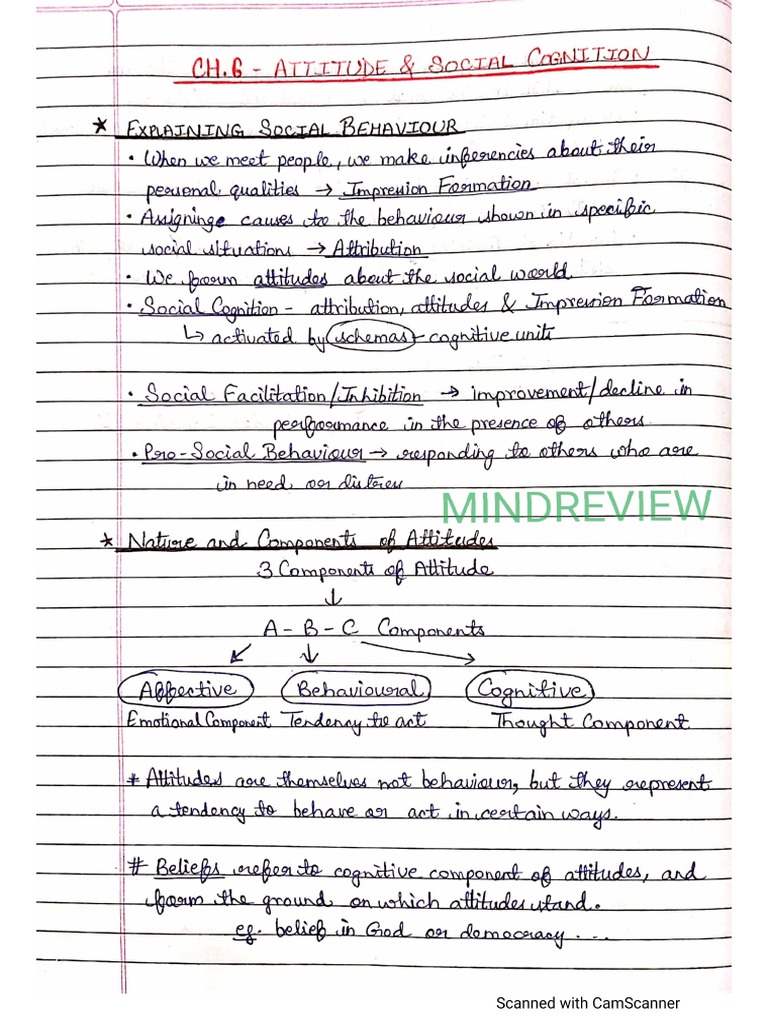 CH.6 - ATTITUDE & SOCIAL COGNITION
* EXPLAINING SOCIAL BEHAVIOUR
• When we meet people, we make inferencies about their
personal qualities → Impression Formation
• Assigninge causes to the behaviour shown in specific
social situations → Attribution
• We form attitudes about the social world.
• Social Cognition - attribution, attitudes & Impression Formation
↳ activated by schemas - cognitive units
• Social Facilitation/Inhibition → improvement/decline in
performance in the presence of others.
• Pro-Social Behaviour → responding to others who are
in need or distress
MINDREVIEW
* Nature and Components of Attitudes
3 Components of Attitude
↓
A - B - C Components
↙ ↓ →
Affective Behavioural Cognitive
Emotional Component Tendency to act Thought Component
* Attitudes are themselves not behaviour, but they represent
a tendency to behave or act in certain ways.
# Beliefs refer to cognitive component of attitudes, and
form the ground on which attitudes stand.
eg. belief in God or democracy....
Scanned with CamScanner